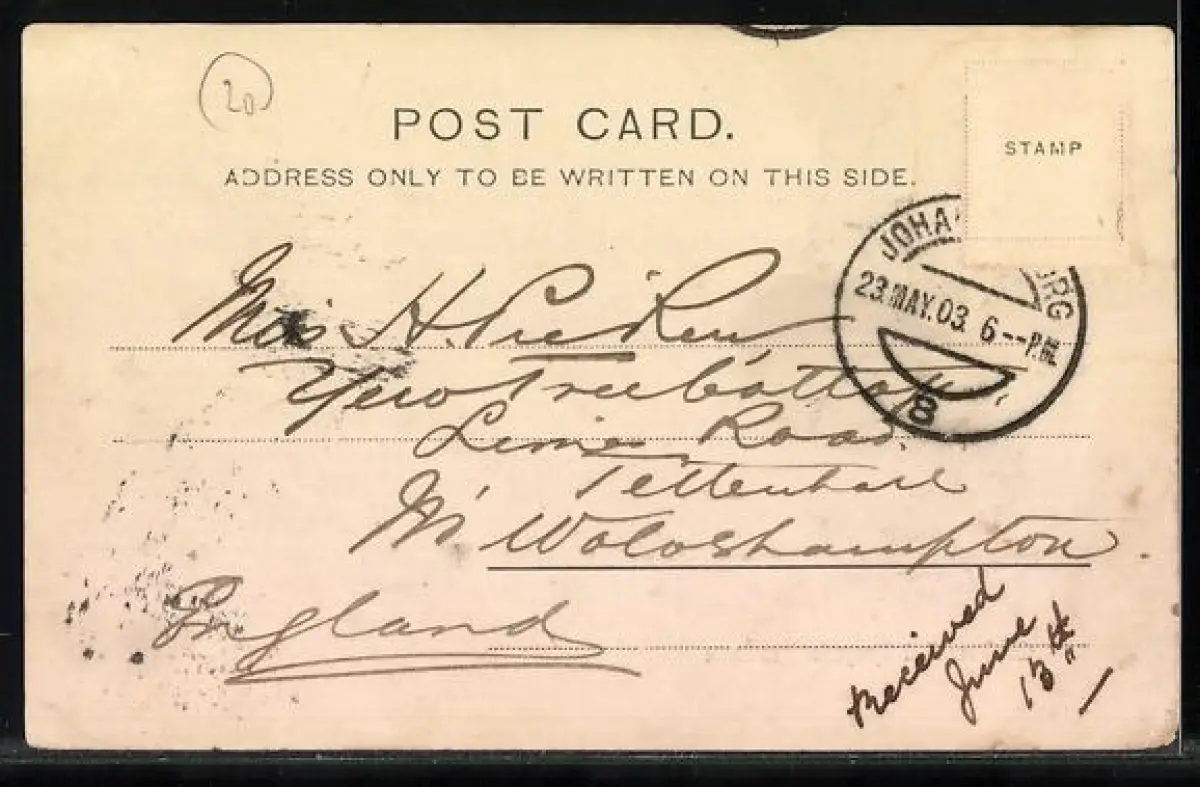 20
POST CARD.
STAMP
ADDRESS ONLY TO BE WRITTEN ON THIS SIDE.
JOHA RG
23.MAY.03. 6--P.M.
8
Miss H.
Yew Tree Cottage,
Road.
Tettenhall
Nr. Woloshampton.
England
Received
June
13th